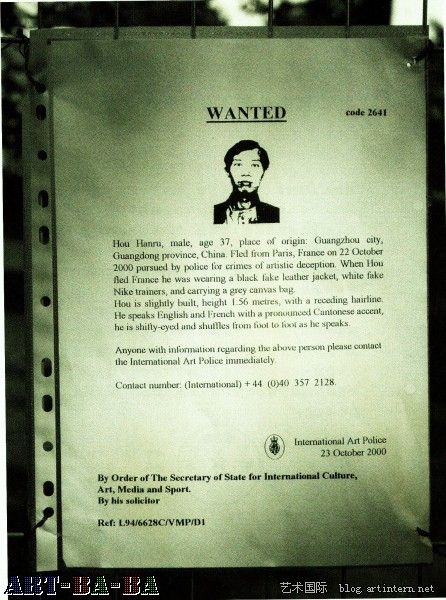 WANTED
code 2641
Hou Hanru, male, age 37, place of origin: Guangzhou city,
Guangdong province, China. Fled from Paris, France on 22 October
2000 pursued by police for crimes of artistic deception. When Hou
fled France he was wearing a black fake leather jacket, white fake
Nike trainers, and carrying a grey canvas bag.
Hou is slightly built, height 1.56 metres, with a receding hairline.
He speaks English and French with a pronounced Cantonese accent,
he is shifty-eyed and shuffles from foot to foot as he speaks.
Anyone with information regarding the above person please contact
the International Art Police immediately.
Contact number: (International) + 44 (0)40 357 2128.
International Art Police
23 October 2000
By Order of The Secretary of State for International Culture,
Art, Media and Sport.
By his solicitor
Ref: L94/6628C/VMP/D1
ART-BA-BA
艺术国际 blog.artintern.net